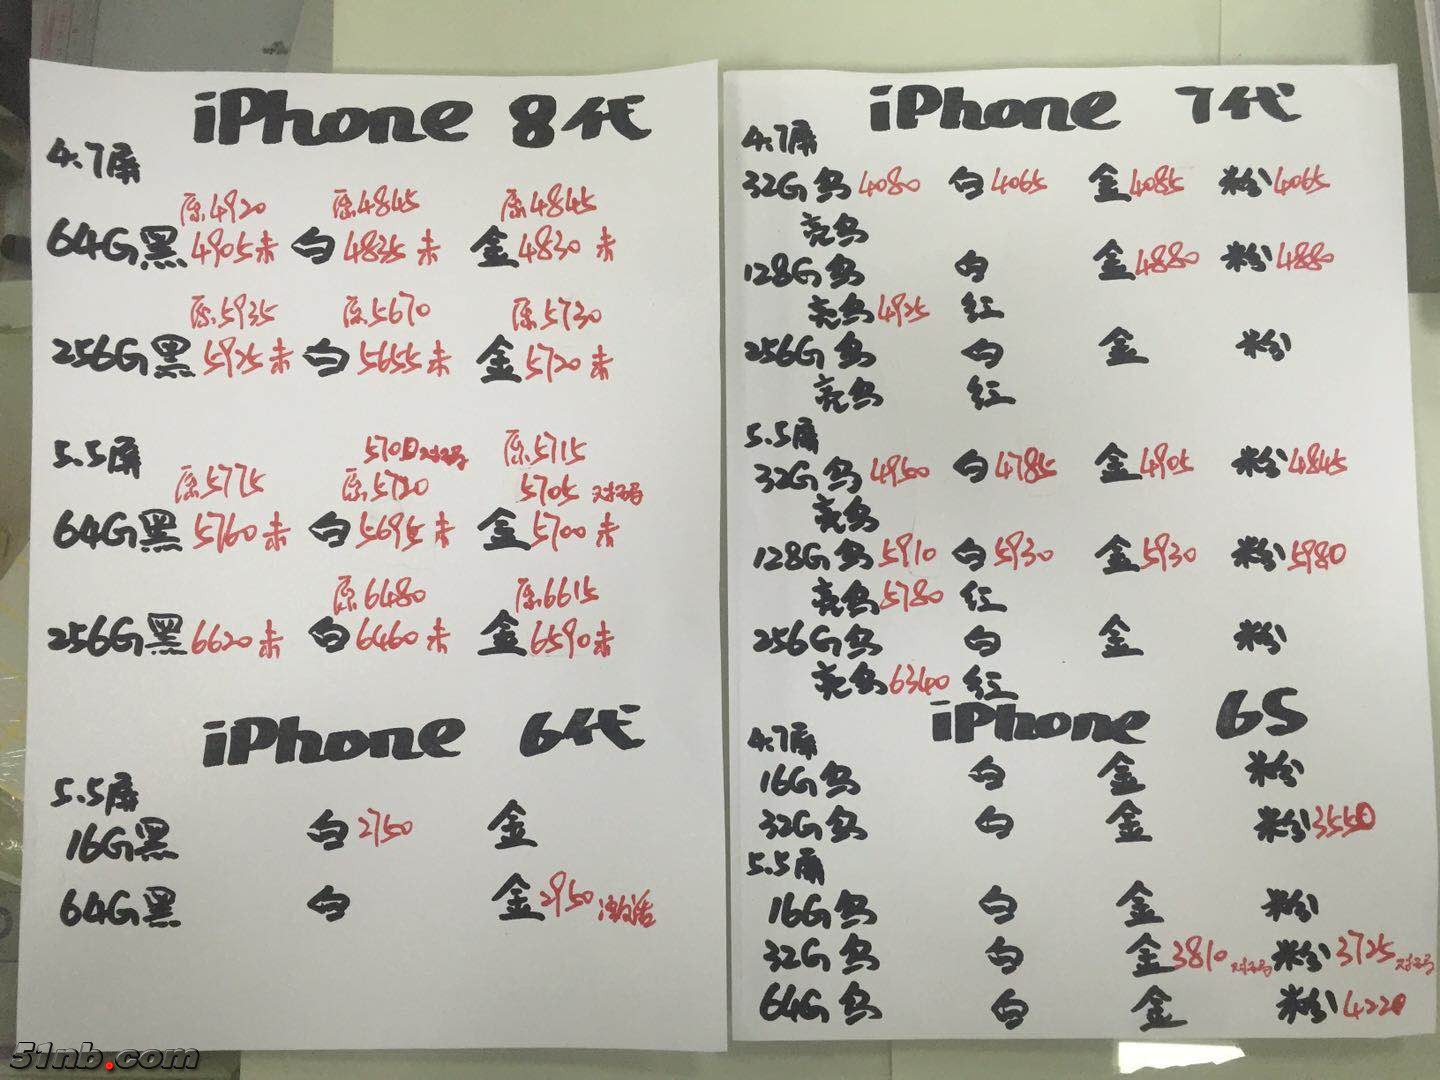 iPhone 8代
4.7屏
原4920 原4845 原4845
64G黑 4905未 白 4835未 金 4830未
原5935 原5670 原5730
256G黑 5925未 白 5655未 金 5720未
5.5屏 5700对码 原5715
原5775 原5720 5705对码
64G黑 5760未 白 5695未 金 5700未
原6480 原6615
256G黑 6620未 白 6460未 金 6590未
iPhone 6代
5.5屏
16G黑 白 2750 金
64G黑 白 金 2950激活
iPhone 7代
4.7屏
32G鸟 4080 白 4065 金 4085 粉 4065
亮鸟
128G鸟 白 金 4880 粉 4880
亮鸟 4925 红
256G鸟 白 金 粉
亮鸟 红
5.5屏
32G鸟 4950 白 4785 金 4905 粉 4845
亮鸟
128G鸟 5910 白 5930 金 5930 粉 5980
亮鸟 5780 红
256G鸟 白 金 粉
亮鸟 6340 红
iPhone 6S
4.7屏
16G鸟 白 金 粉
32G鸟 白 金 粉 3550
5.5屏
16G鸟 白 金 粉
32G鸟 白 金 3810对码 粉 3725对码
64G鸟 白 金 粉 4220
51nb.com